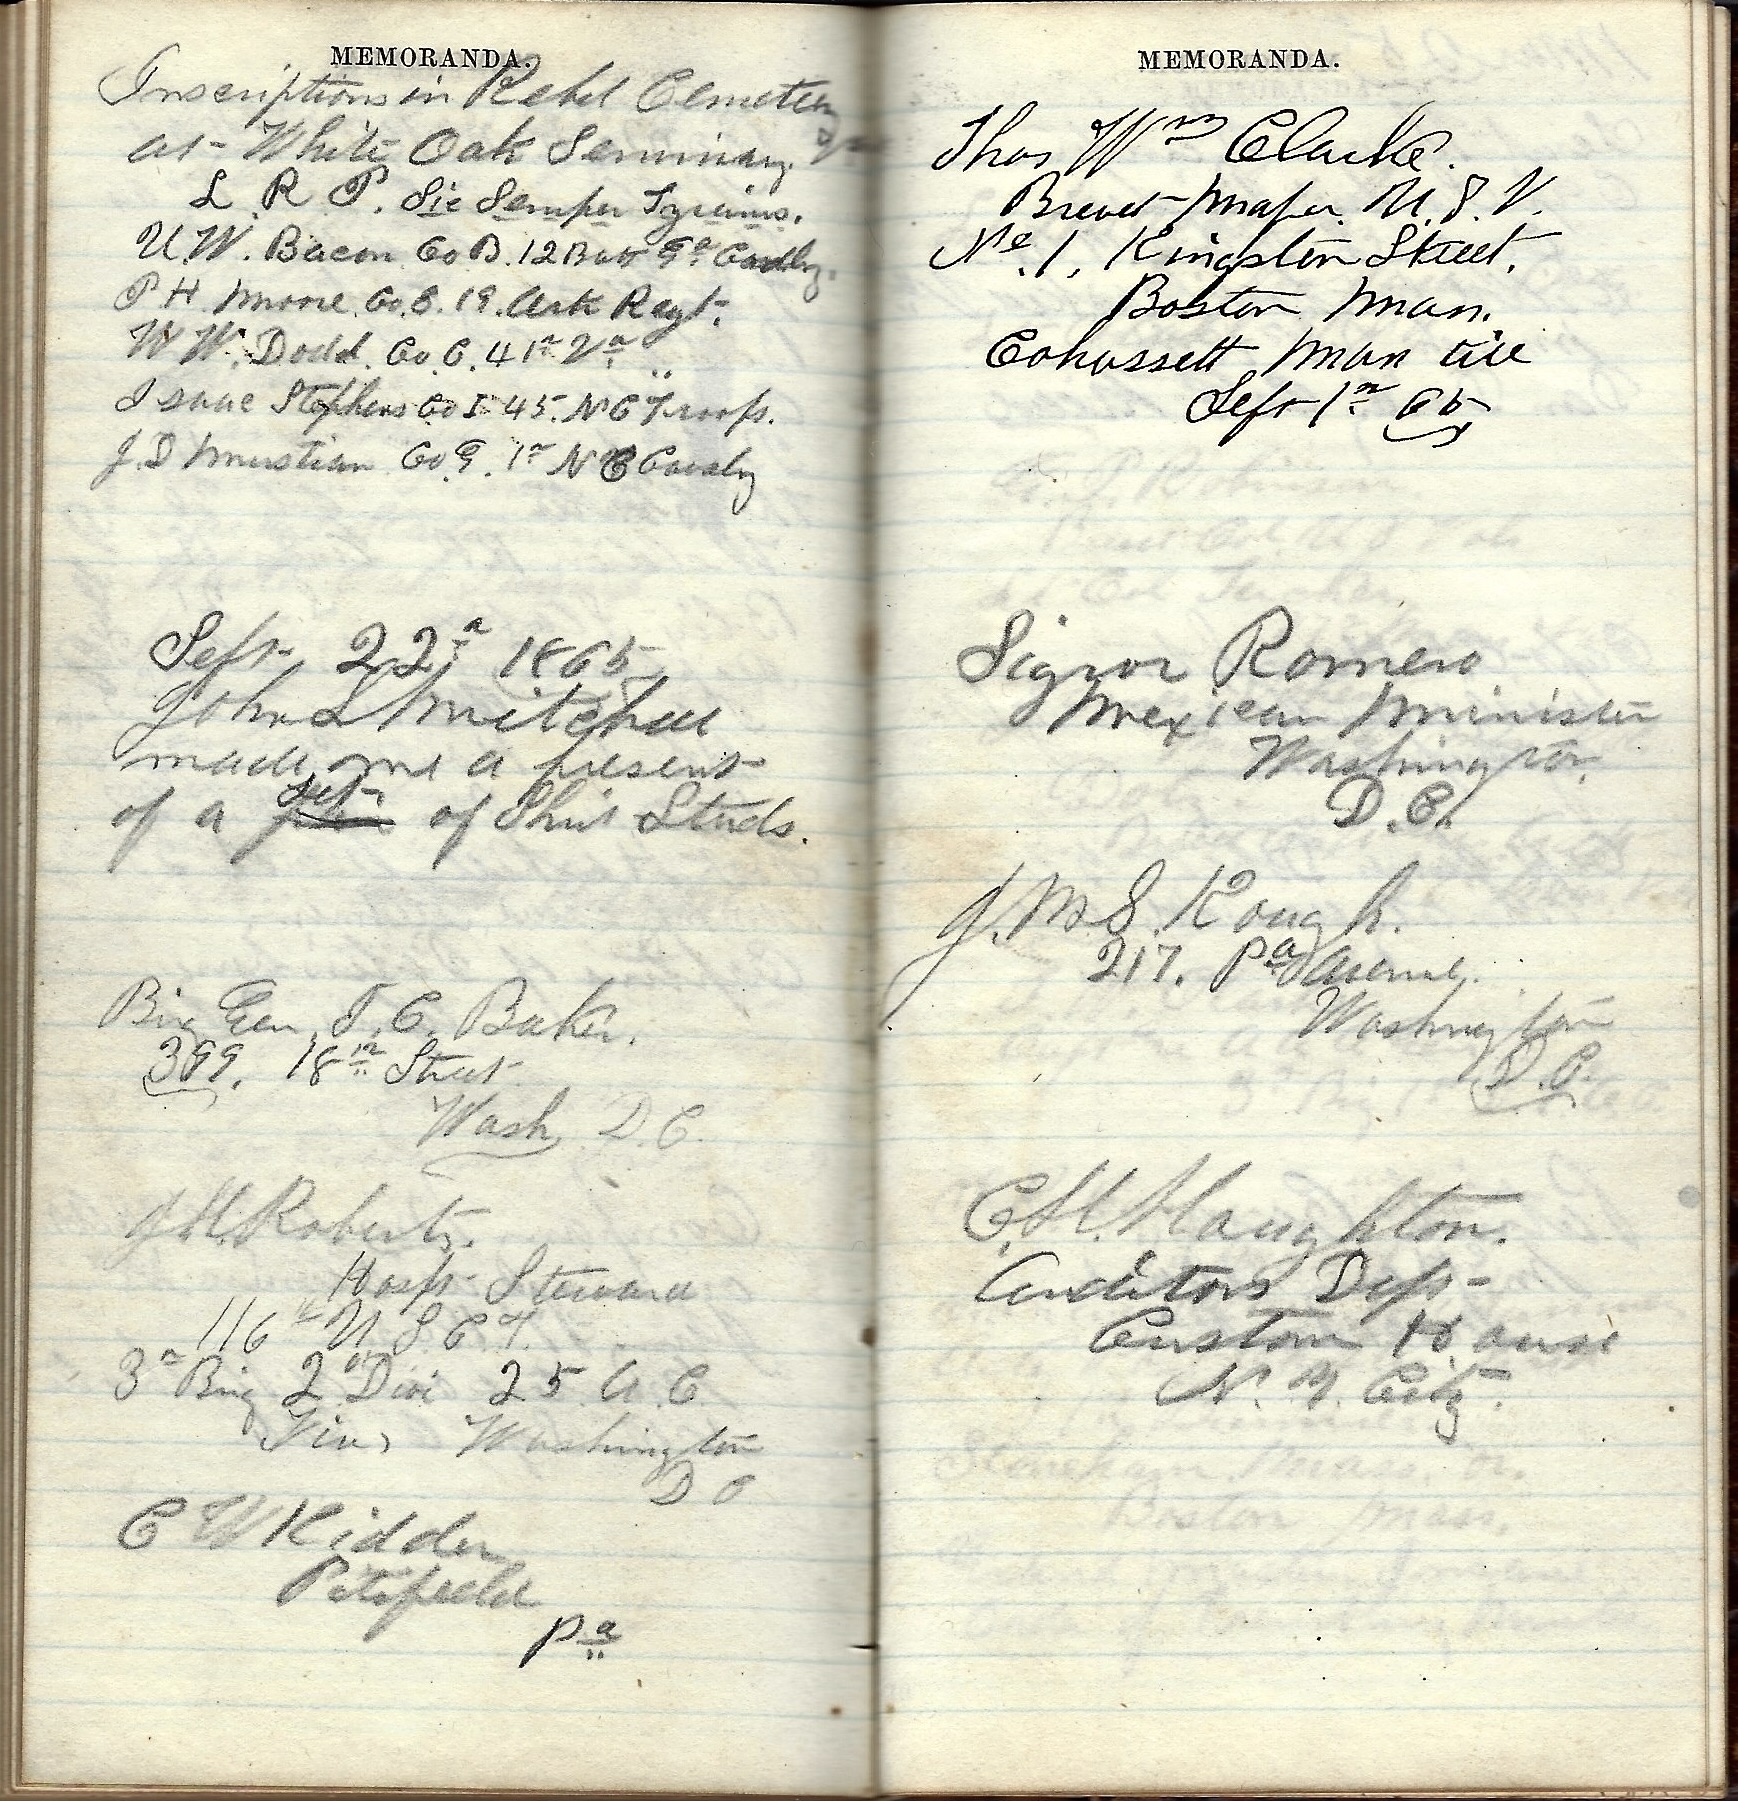 MEMORANDA.
Inscriptions in Rebel Cemetery
at White Oak Seminary.
L. R. P. Sic Semper Tyrannis.
U. W. Bacon Co B. 12 Batt Ga Cavalry.
P H Moore Co. 19. Ark Regt.
W W. Dodd. Co C. 41st Va "
Isaac Stephens Co I 45. N C Troops.
J. D Mustian Co G. 1st N C Cavalry
Sept. 22d 1865
John S Mitchell
made me a present
of a set of Shirt Studs.
Brig Gen. Baker.
399. 18th Street
Wash D. C.
J H. Roberts.
Hosp. Steward
116th U S C T.
3d Brig 2d Divi 25 A. C.
Via Washington
D C
C W Kidder
Pittsfield
Pa
MEMORANDA.
Thos Wm Clarke.
Brevet Major U. S. V.
No. 1, Kingston Street.
Boston Mass.
Cohassett Mass till
Sept 1st 65
Signor Romero
Mexican Minister
Washington.
D. C.
J. M. S. Kough.
217. Pa Avenue.
Washington
D. C.
C. H. Haughton.
Auditors Dept
Custom House
N. Y. City.